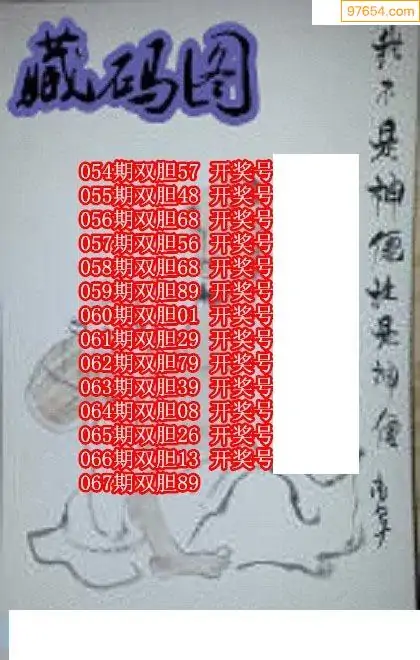 97654.com
藏码图
054期双胆57 开奖号
055期双胆48 开奖号
056期双胆68 开奖号
057期双胆56 开奖号
058期双胆68 开奖号
059期双胆89 开奖号
060期双胆01 开奖号
061期双胆29 开奖号
062期双胆79 开奖号
063期双胆39 开奖号
064期双胆08 开奖号
065期双胆26 开奖号
066期双胆13 开奖号
067期双胆89
我不是神僊
是神僊